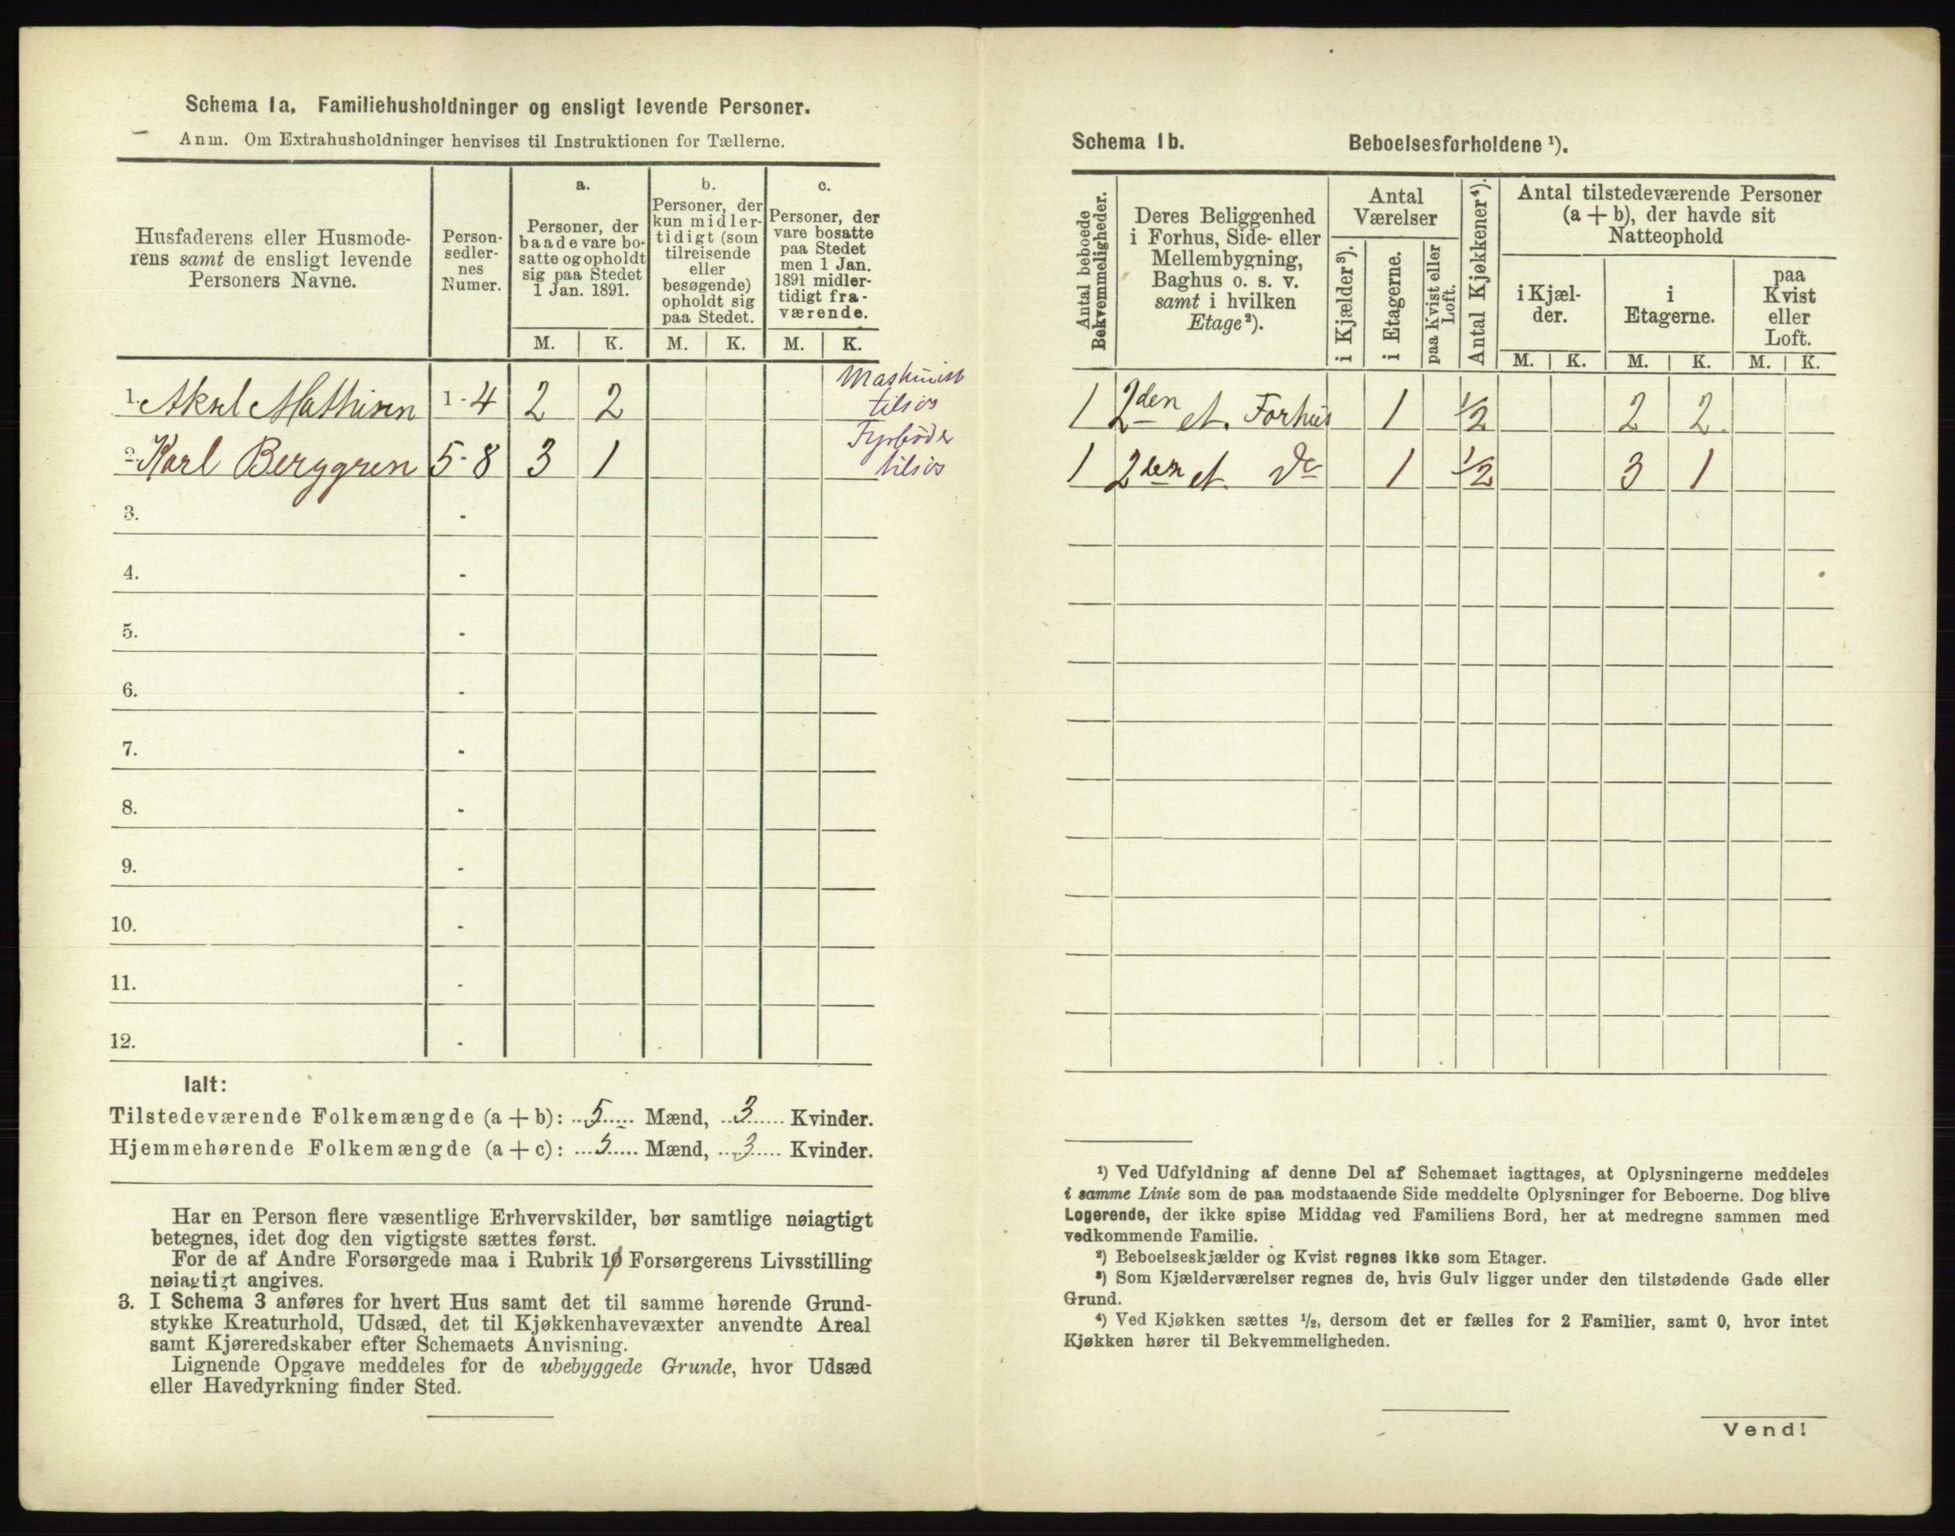 Schema 1a. Familiehusholdninger og ensligt levende Personer.
Anm. Om Extrahusholdninger henvises til Instruktionen for Tællerne.
Husfaderens eller Husmode-
rens samt de ensligt levende
Personers Navne.
Person-
sedler-
nes
Numer.
a.
Personer, der
baade vare bo-
satte og opholdt
sig paa Stedet
1 Jan. 1891.
b.
Personer, der
kun midler-
tidigt (som
tilreisende
eller
besøgende)
opholdt sig
paa Stedet.
c.
Personer, der
vare bosatte
paa Stedet
men 1 Jan.
1891 midler-
tidigt fra-
værende.
M. K. M. K. M. K.
1. Aksel Mathisen 1 - 4 2 2 Maskinist tilsjøs
2. Karl Berggren 5 - 8 3 1 Fyrbøder tilsjøs
3. -
4. -
5. -
6. -
7. -
8. -
9. -
10. -
11. -
12. -
Ialt:
Tilstedeværende Folkemængde (a + b): 5 Mænd, 3 Kvinder.
Hjemmehørende Folkemængde (a + c): 5 Mænd, 3 Kvinder.
Har en Person flere væsentlige Erhvervskilder, bør samtlige nøiagtigt
betegnes, idet dog den vigtigste sættes først.
For de af Andre Forsørgede maa i Rubrik 10 Forsørgerens Livsstilling
nøiagtigt angives.
3. I Schema 3 anføres for hvert Hus samt det til samme hørende Grund-
stykke Kreaturhold, Udsæd, det til Kjøkkenhavevæxter anvendte Areal
samt Kjøreredskaber efter Schemaets Anvisning.
Lignende Opgave meddeles for de ubebyggede Grunde, hvor Udsæd
eller Havedyrkning finder Sted.
Schema 1b. Beboelsesforholdene ¹).
Antal beboede
Bekvemmeligheder.
Deres Beliggenhed
i Forhus, Side- eller
Mellembygning,
Baghus o. s. v.
samt i hvilken
Etage²).
Antal
Værelser
i Kjælder³).
i Etagerne.
paa Kvist eller
Loft.
Antal Kjøkkener⁴).
Antal tilstedeværende Personer
(a + b), der havde sit
Natteophold
i Kjæl-
der.
i
Etagerne.
paa
Kvist
eller
Loft.
M. K. M. K. M. K.
1 2den et. Forhus 1 ½ 2 2
1 2den et. do 1 ½ 3 1
¹) Ved Udfyldning af denne Del af Schemaet iagttages, at Oplysningerne meddeles
i samme Linie som de paa modstaaende Side meddelte Oplysninger for Beboerne. Dog blive
Logerende, der ikke spise Middag ved Familiens Bord, her at medregne sammen med
vedkommende Familie.
²) Beboelseskjælder og Kvist regnes ikke som Etager.
³) Som Kjælderværelser regnes de, hvis Gulv ligger under den tilstødende Gade eller
Grund.
⁴) Ved Kjøkken sættes ½, dersom det er fælles for 2 Familier, samt 0, hvor intet
Kjøkken hører til Bekvemmeligheden.
Vend!